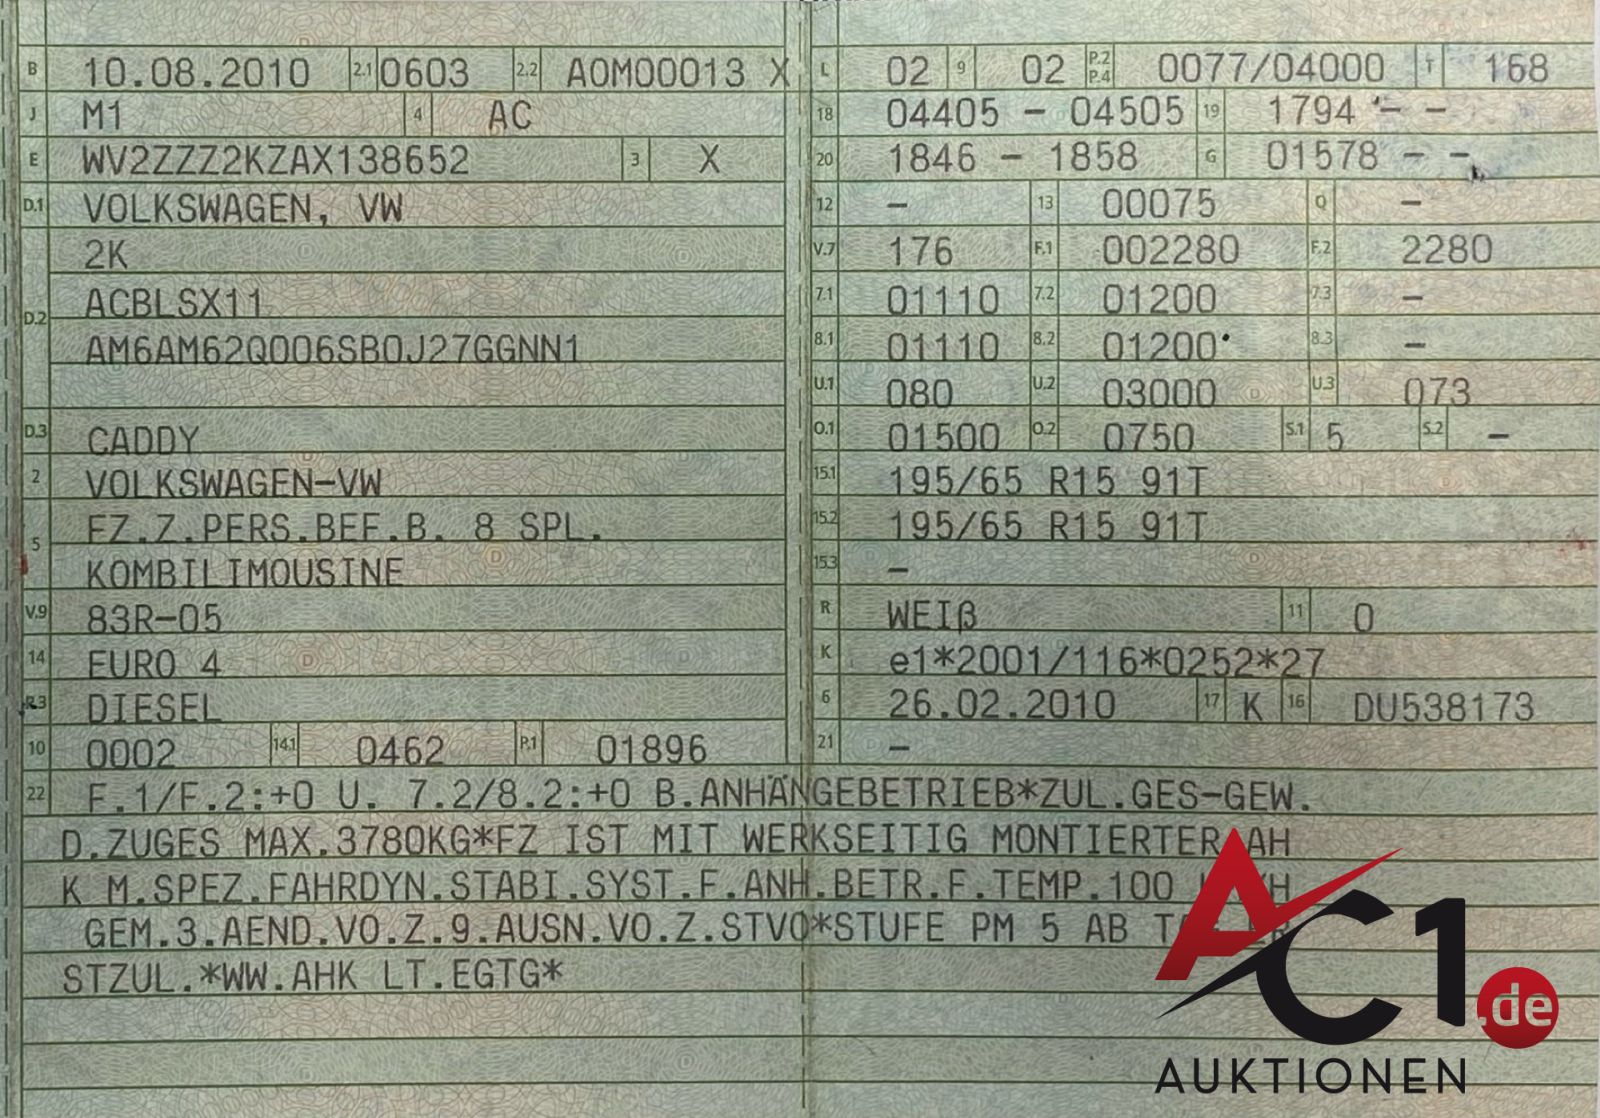 B 10.08.2010 2.1 0603 2.2 A0M00013 X
J M1 4 AC
E WV2ZZZ2KZAX138652 3 X
D.1 VOLKSWAGEN, VW
2K
D.2 ACBLSX11
AM6AM62Q006SB0J27GGNN1
D.3 CADDY
2 VOLKSWAGEN-VW
FZ.Z.PERS.BEF.B. 8 SPL.
5 KOMBILIMOUSINE
V.9 83R-05
14 EURO 4
P.3 DIESEL
10 0002 14.1 0462 P.1 01896
L 02 9 02 P.2 P.4 0077/04000 T 168
18 04405 - 04505 19 1794 - -
20 1846 - 1858 G 01578 - -
12 - 13 00075 Q -
V.7 176 F.1 002280 F.2 2280
7.1 01110 7.2 01200 7.3 -
8.1 01110 8.2 01200 8.3 -
U.1 080 U.2 03000 U.3 073
O.1 01500 O.2 0750 S.1 5 S.2 -
15.1 195/65 R15 91T
15.2 195/65 R15 91T
15.3 -
R WEIß 11 0
K e1*2001/116*0252*27
6 26.02.2010 17 K 16 DU538173
21 -
22 F.1/F.2:+0 U. 7.2/8.2:+0 B.ANHÄNGEBETRIEB*ZUL.GES-GEW.
D.ZUGES MAX.3780KG*FZ IST MIT WERKSEITIG MONTIERTER AH
K M.SPEZ.FAHRDYN.STABI.SYST.F.ANH.BETR.F.TEMP.100
GEM.3.AEND.VO.Z.9.AUSN.VO.Z.STVO*STUFE PM 5 AB
STZUL.*WW.AHK LT.EGTG*
AC1.de
AUKTIONEN